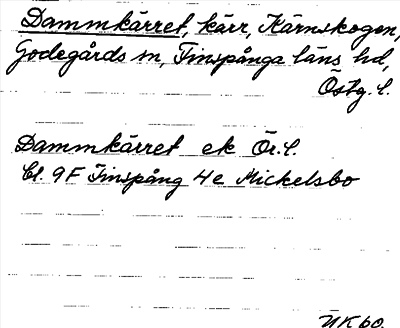 Dammkärret, kärr, Kärnskogen,
Godegårds sn, Finspånga läns hd,
Östg. l.
Dammkärret ek Ör. l.
Bl. 9F Finspång 4e Mickelsbo
NK 60.